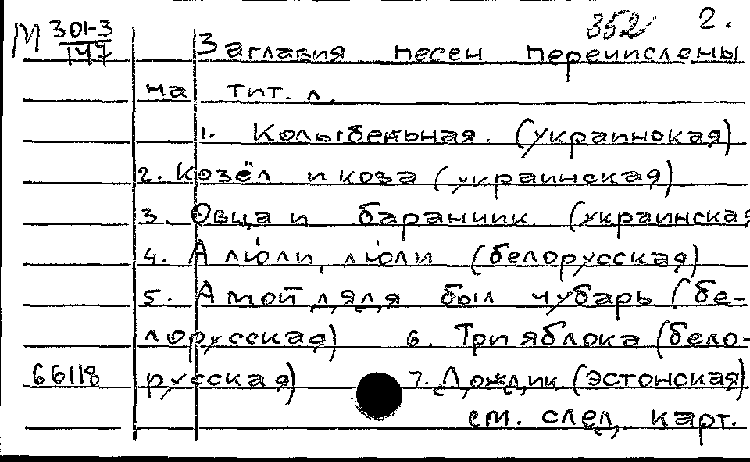 М 301-3 352 2.
147 Заглавия песен перечислены
на тит. л.
1. Колыбельная. (украинская)
2. Козёл и коза (украинская)
3. Овца и баранчик (украинская
4. А люли, люли (белорусская)
5. А мой дядя был чубарь (бе-
лорусская) 6. Три яблока (бело-
66118 русская) 7. Дождик (эстонская)
см. след. карт.